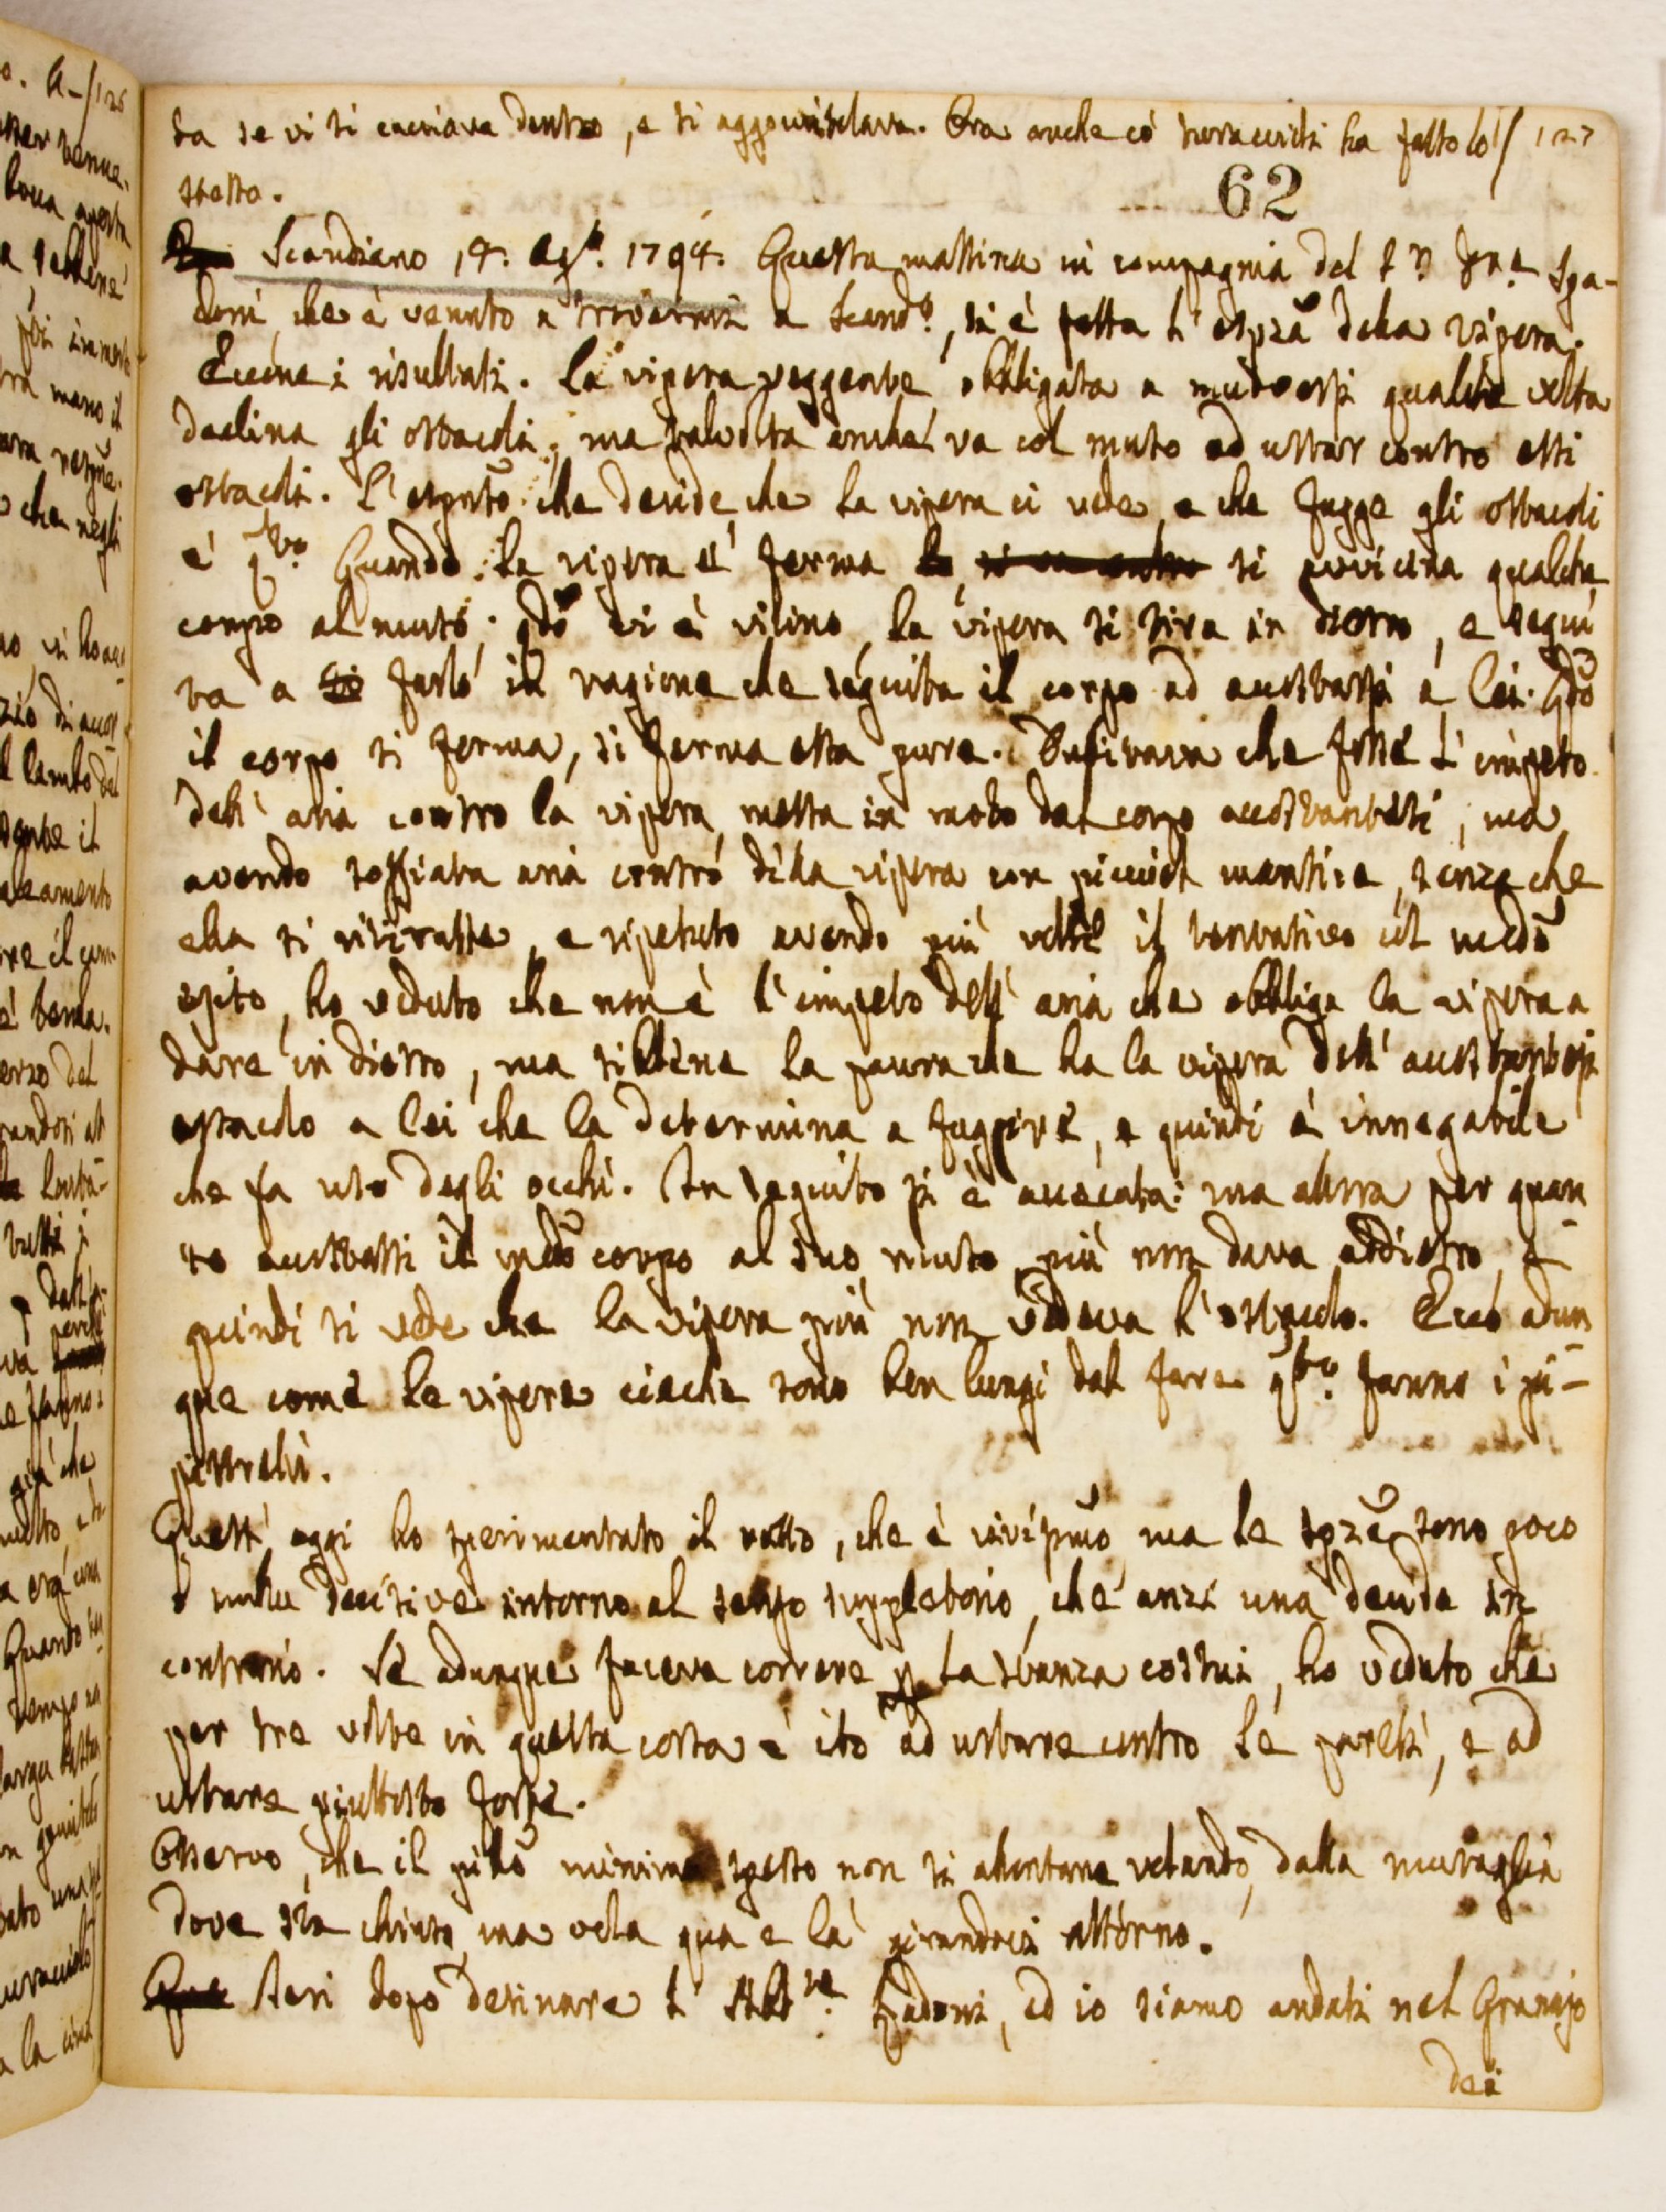 ta se vi si cacciava dentro, e si aggomitolava. Ora anche có turaccioli ha fatto lo / 127
stesso.
62
Scandiano 14. Agto. 1794. Questa mattina in compagnia del Spa-
doni che è venuto a trovarmi a Scando., si è fatta l'espza della vipera.
Eccone i risultati. La vipera veggente obbligata a muoversi qualche volta
declina gli ostacoli; ma talvolta anche va col muso ad urtar contro essi
ostacoli. L'espmto che decide che la vipera ci vede, e che fugge gli ostacoli
è qto. Quando la vipera è ferma si avvicina qualche
corpo al muso; qdo vi è vicino, la vipera si tira in dietro, e segui
ta a farlo in ragione che séguita il corpo ad accostarsi a lei. Qdo
il corpo si ferma, si ferma essa pure. Dubitava che fosse l'impeto
dell'aria contro la vipera messa in moto dal corpo accostantesi; ma
avendo soffiata aria contro della vipera con picciol mantice, senza che
ella si ritirasse, e ripetuto avendo più volte il tentativo col medo
esito, ho veduto che non è l'impeto dell'aria che obbliga la vipera a
dare in dietro, ma sibbene la paura che ha la vipera dell'accostantesi
ostacolo a lei che la determina a fuggire, e quindi è innegabile
che fa uso degli occhi. In seguito si è accecata: ma allora per quan
to accostassi il medo corpo al suo muso più non dava addietro, e
quindi si vede che la vipera più non vedeva l'ostacolo. Ecco adun
que come le vipere cieche sono ben lungi dal fare qto. fanno i pi-
pistrelli.
Quest'oggi ho sperimentato il ratto, che è vivipmo ma le spze sono poco
o nulla decisive intorno al senso suppletorio, che anzi una decide in
contrario. Se adunque faceva correre p la stanza costui, ho veduto che
per tre volte in questa corsa è ito ad urtare contro le pareti, e ad
urtare piuttosto forte.
Osservo, che il pillo minimo spesso non si allontana volando, dalla muraglia
dove sta chiuso, ma vola qua e là girandoci attorno.
Ieri dopo desinare l' Spadoni, ed io siamo andati nel Granajo
dei